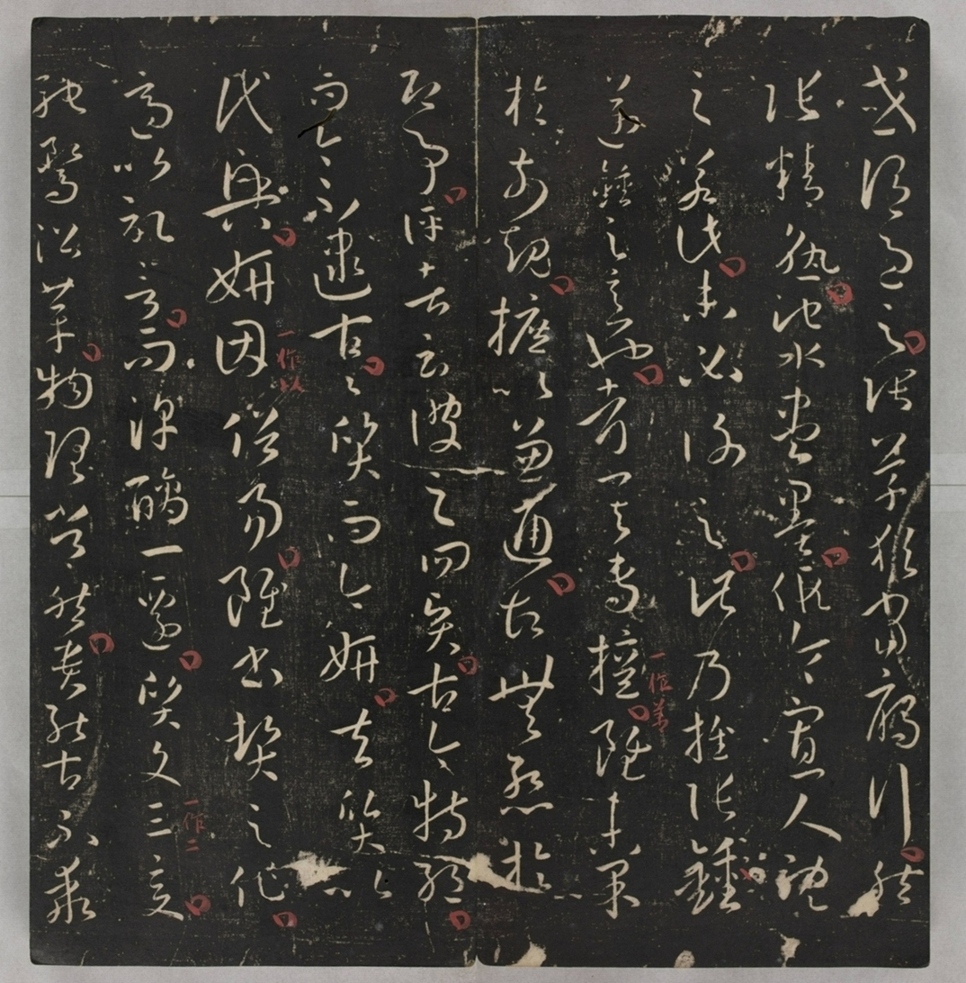 或謂過之張草猶當鴈行然
張精熟池水盡墨假令寡人耽
之若此未必謝之此乃推張鍾
邁鍾之意也考其專擅雖未果
一作
於前規摭以兼通故無慙於
即事評者云彼之四賢古今特絕
而今不逮古々質而今妍夫質以
代興妍因俗易雖書契之作
一作以
適以記言而淳醨一遷質文三變
一作二
馳騖沿革物理常然貴能古不乖